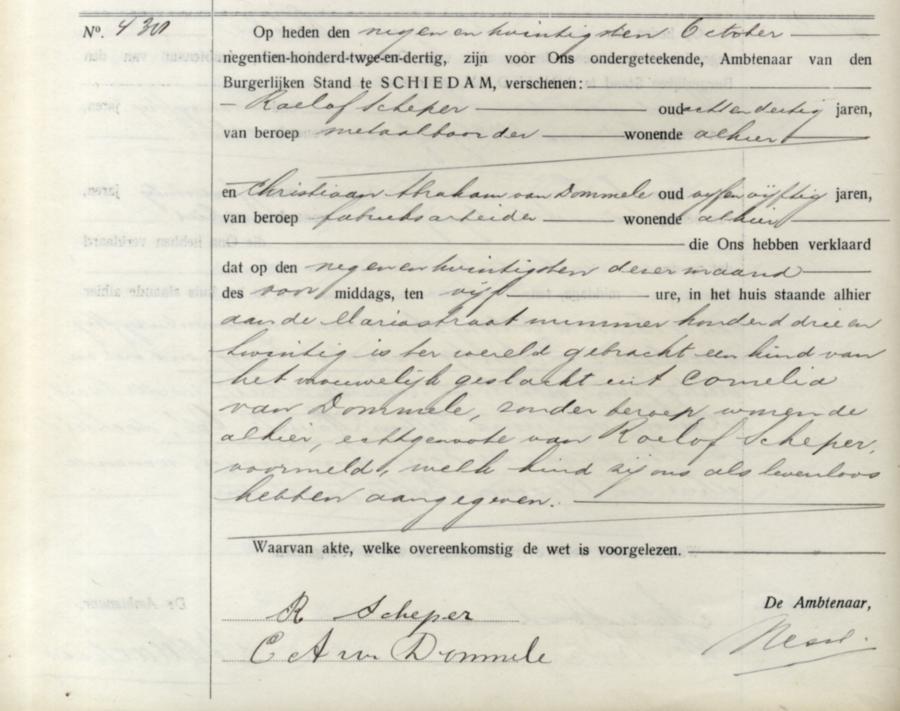 No. 430
Op heden den negen en twintigsten October
negentien-honderd-twee-en-dertig, zijn voor Ons ondergeteekende, Ambtenaar van den
Burgerlijken Stand te SCHIEDAM, verschenen:
Roelof Scheper oud acht en dertig jaren,
van beroep metaalboorder wonende alhier
en Christiaan Abraham van Dommele oud vijf en vijftig jaren,
van beroep fabrieksarbeider wonende alhier
die Ons hebben verklaard
dat op den negen en twintigsten dezer maand
des voor middags, ten vijf ure, in het huis staande alhier
aan de Mariastraat nummer honderd drie en
twintig is ter wereld gebracht een kind van
het vrouwelijk geslacht uit Cornelia
van Dommele, zonder beroep, wonende
alhier, echtgenoote van Roelof Scheper,
voormeld, welk kind zij ons als levenloos
hebben aangegeven.
Waarvan akte, welke overeenkomstig de wet is voorgelezen.
De Ambtenaar,
R Scheper
C A v Dommele